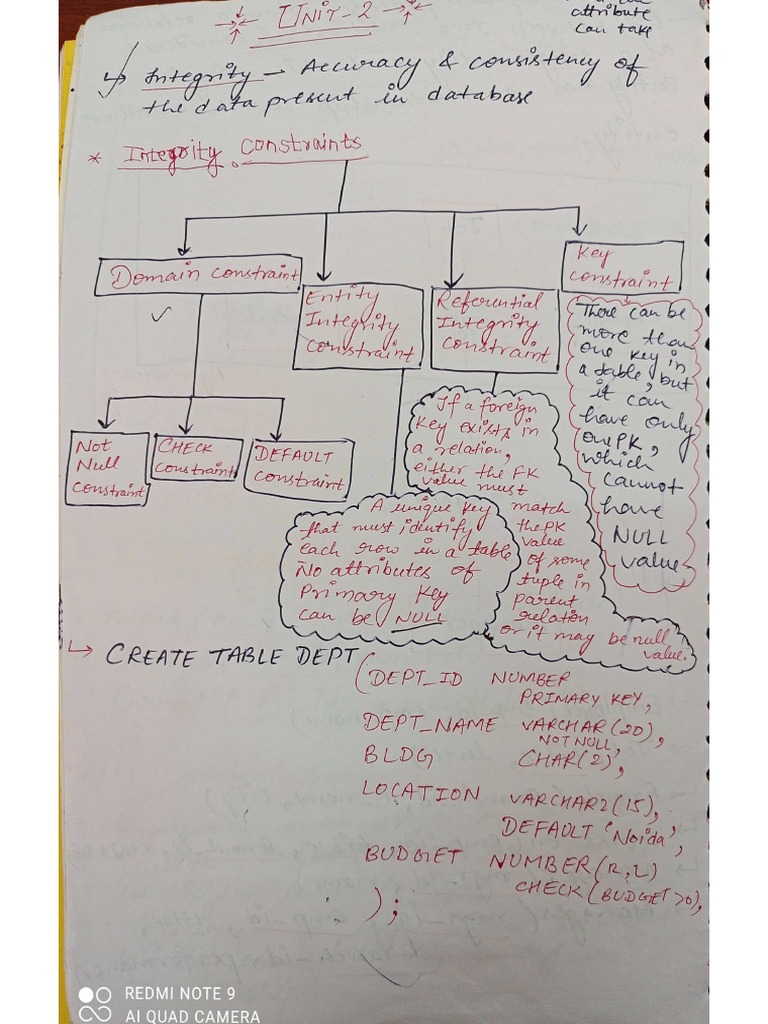 UNIT-2
attribute
can take
Integrity - Accuracy & consistency of
the data present in database
* Integrity Constraints
Domain constraint
Entity
Integrity
Constraint
Referential
Integrity
Constraint
Key
Constraint
Not
Null
Constraint
CHECK
Constraint
DEFAULT
Constraint
There can be
more than
one key in
a table, but
it can
have only
one PK,
which
cannot
have
NULL
value
If a foreign
key exists in
a relation,
either the FK
value must
match
the PK
value
of some
tuple in
parent
relation
or it may be null
value.
A unique key
that must identify
each row in a table
No attributes of
Primary Key
can be NULL
CREATE TABLE DEPT
(DEPT_ID NUMBER
PRIMARY KEY,
DEPT_NAME VARCHAR(20),
NOT NULL,
BLDG CHAR(2),
LOCATION VARCHAR2(15),
DEFAULT 'Noida',
BUDGET NUMBER(R,2)
CHECK(BUDGET>0),
);
REDMI NOTE 9
AI QUAD CAMERA